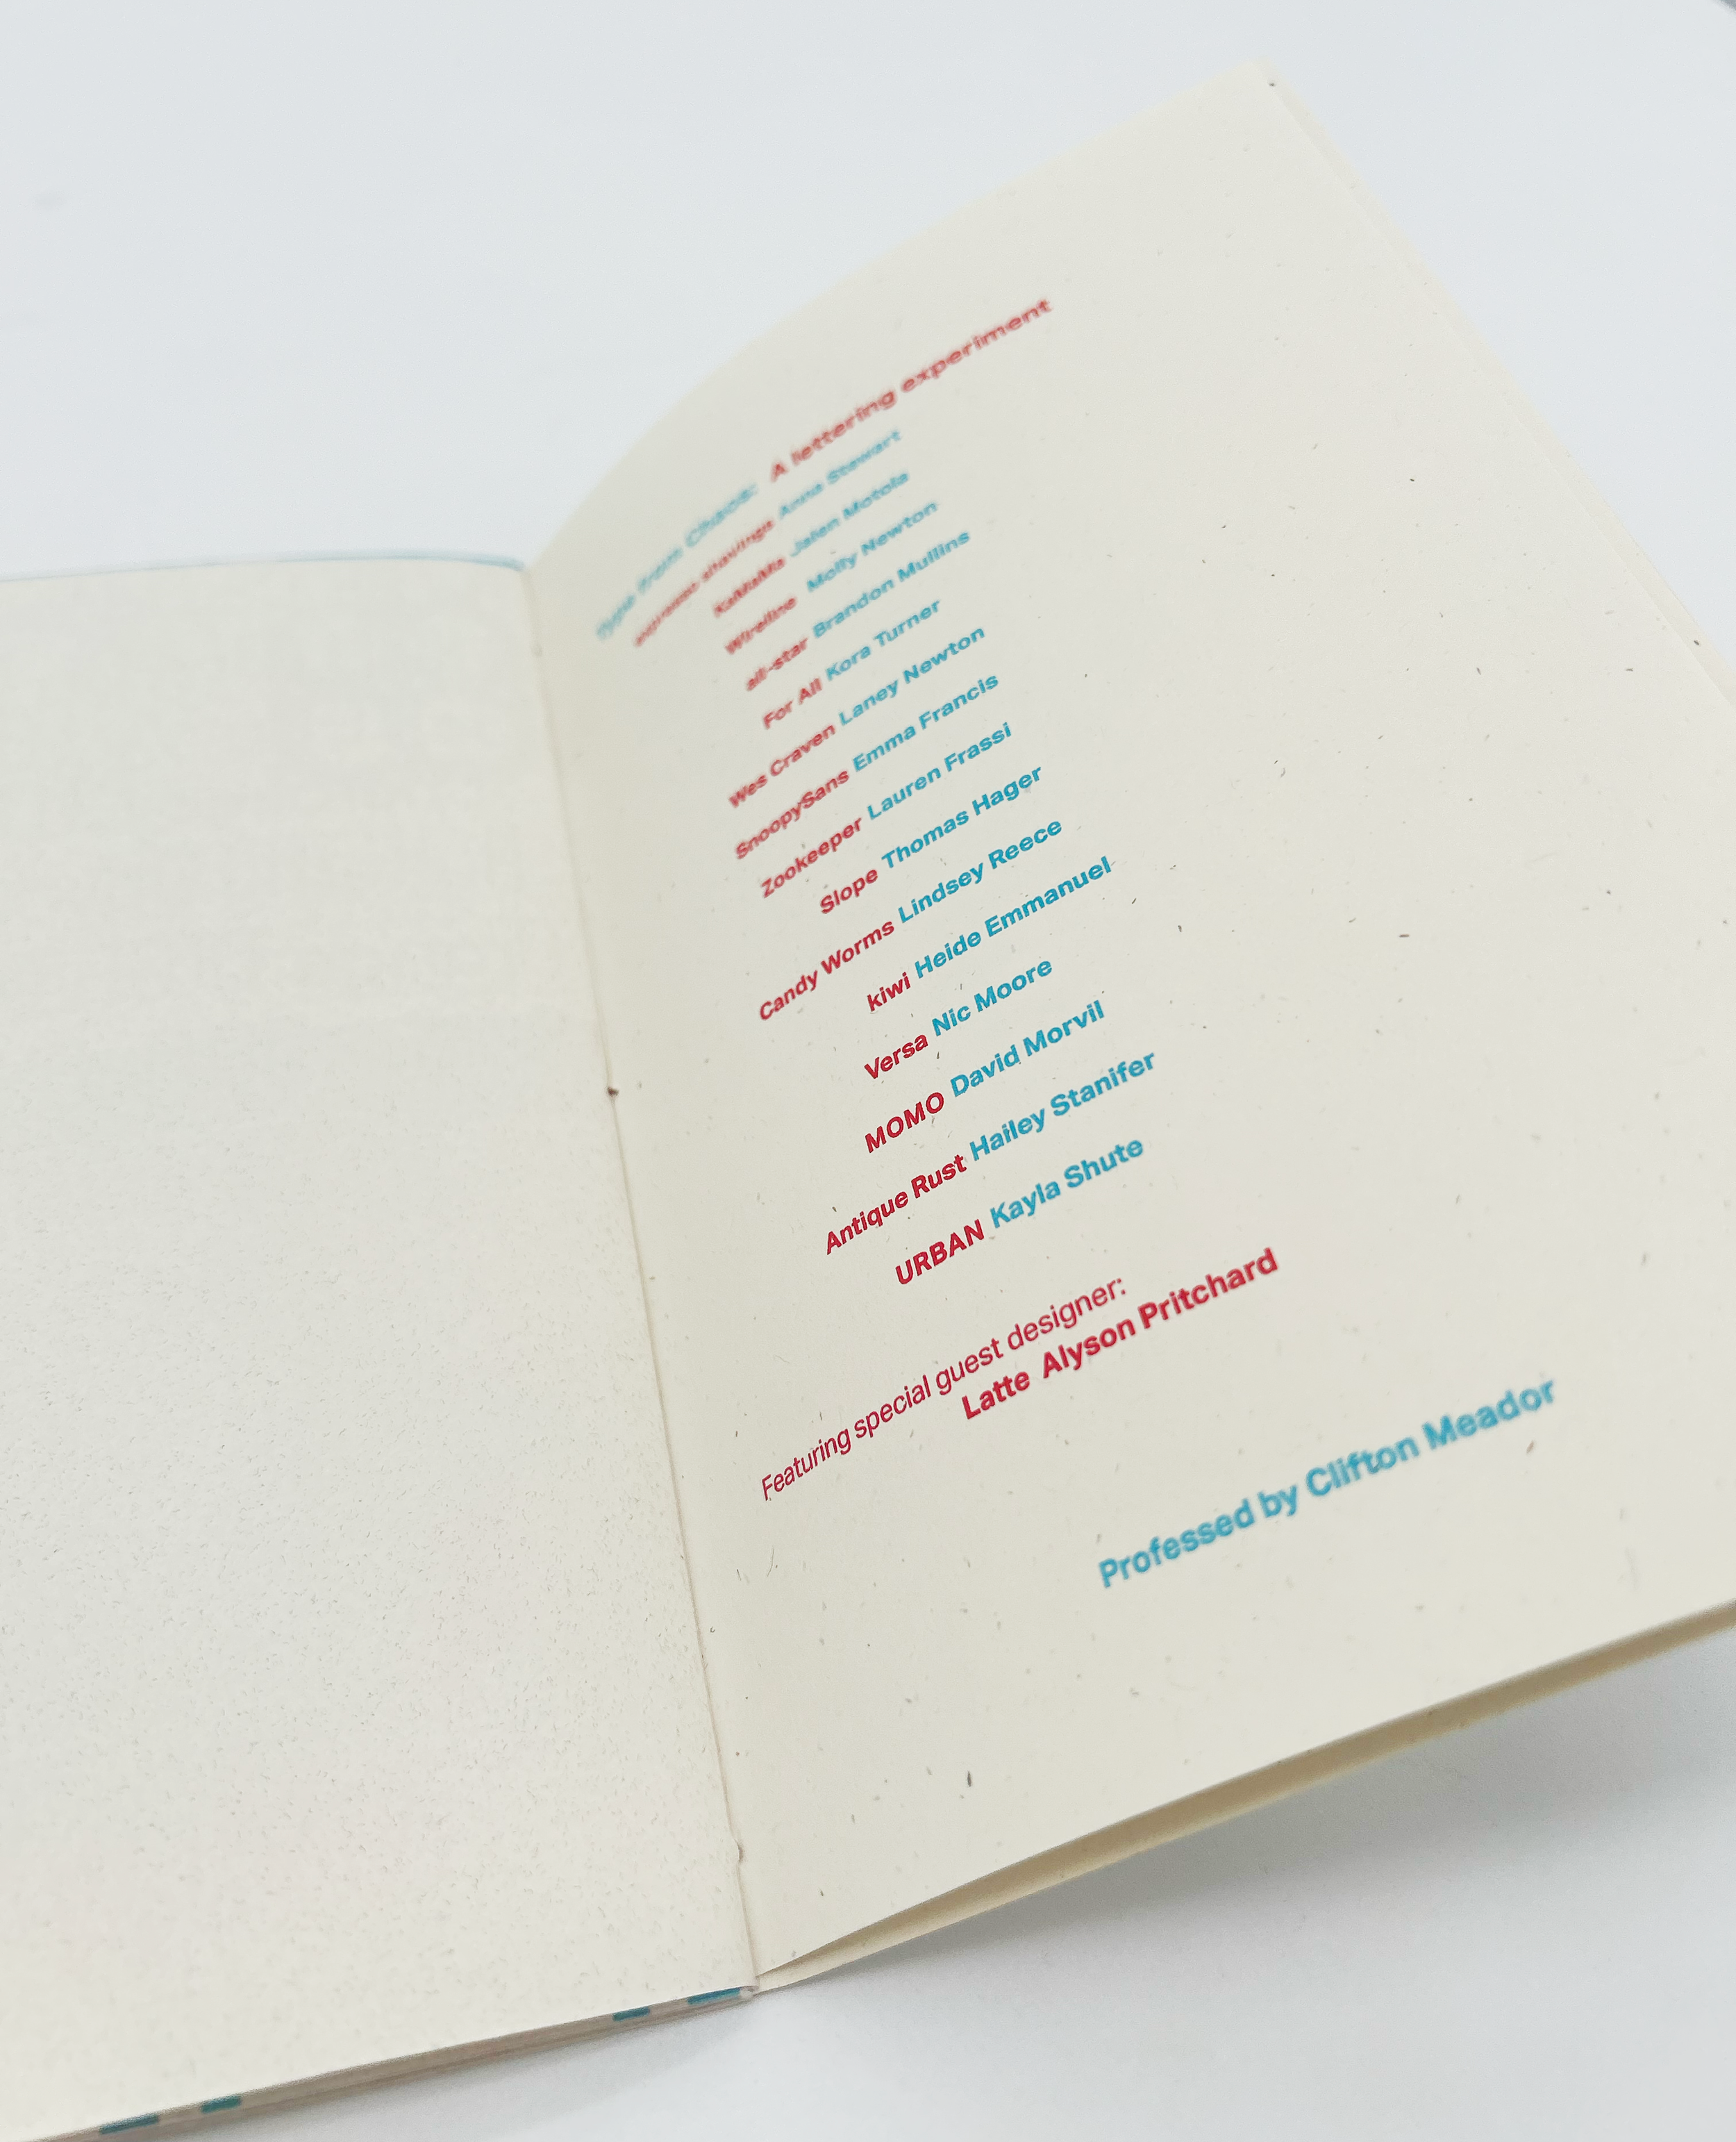 Type from Chaos: A lettering experiment
Anna Stewart
KaMaMa Jalen Motola
Wireline Molly Newton
all-star Brandon Mullins
For All Kora Turner
Wes Craven Laney Newton
SnoopySans Emma Francis
Zookeeper Lauren Frassi
Slope Thomas Hager
Candy Worms Lindsey Reece
kiwi Heide Emmanuel
Versa Nic Moore
MOMO David Morvil
Antique Rust Hailey Stanifer
URBAN Kayla Shute
Featuring special guest designer:
Latte Alyson Pritchard
Professed by Clifton Meador